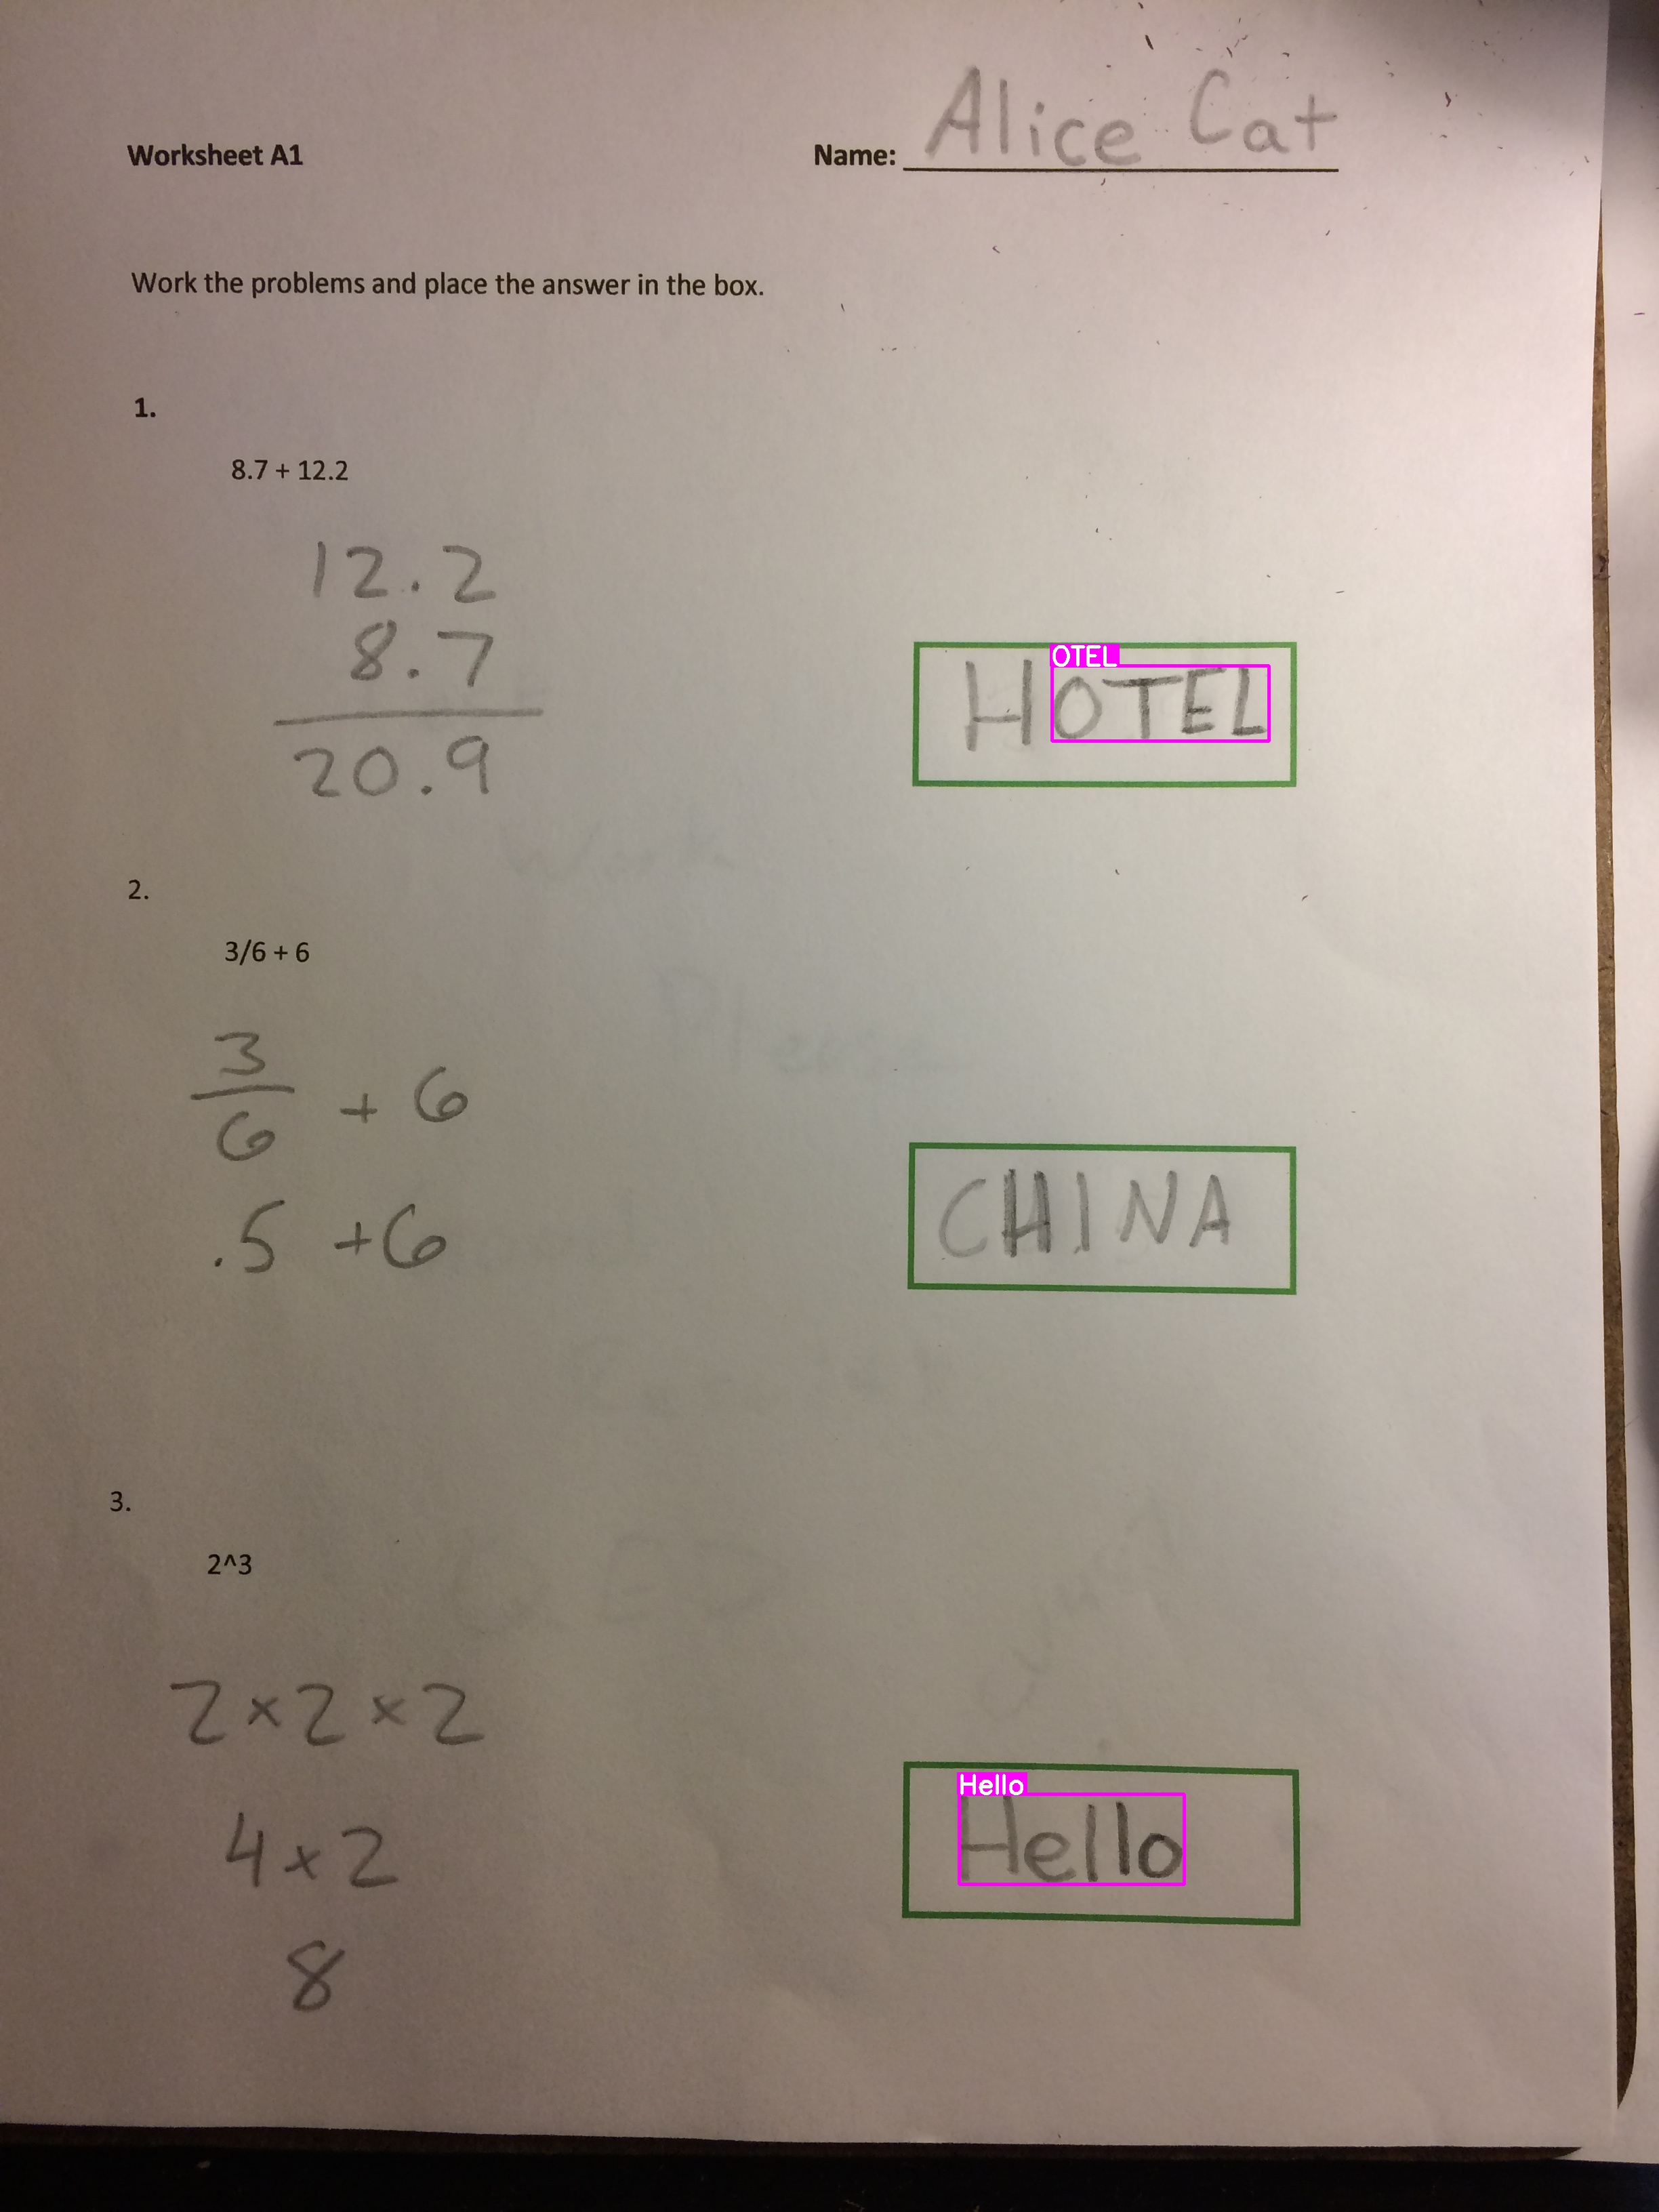 Worksheet A1 Name: Alice Cat
Work the problems and place the answer in the box.
1.
8.7 + 12.2
12.2
8.7
20.9
OTEL
HOTEL
2.
3/6 + 6
3
6 + 6
.5 + 6
CHINA
Work
Please
3.
2^3
2 × 2 × 2
4 × 2
8
Hello
Hello